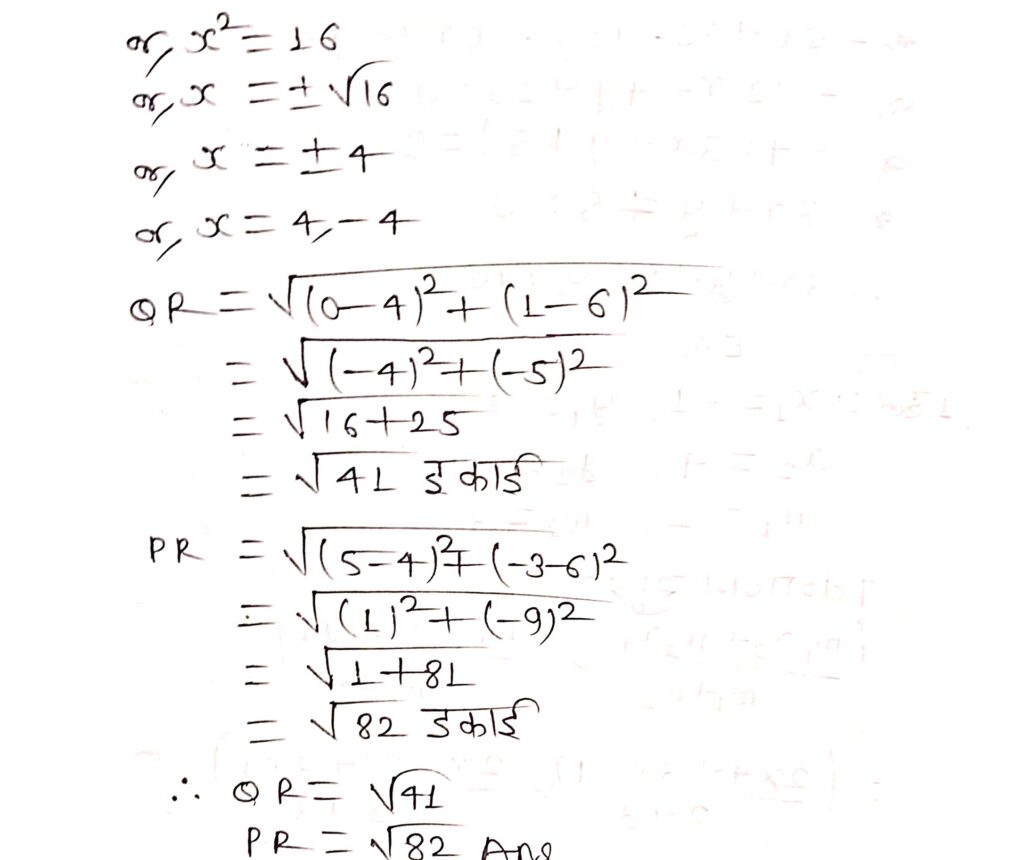 or, x² = 16
or, x = ± √16
or, x = ± 4
or, x = 4, - 4
QR = √(0-4)² + (1-6)²
= √(-4)² + (-5)²
= √16+25
= √41 इकाई
PR = √(5-4)² + (-3-6)²
= √(1)² + (-9)²
= √1+81
= √82 इकाई
∴ QR = √41
PR = √82 Ans